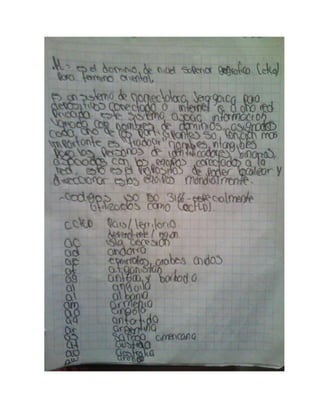 .tl = es el dominio de nivel superior geografico (cctld)
para termino oriental
es un sistema de nomenclatura jerarquica para
dispositivos conectado a internet o a una red
privada este sistema asocia informacion
variada con nombres de dominios asignados
cada uno de los participantes su funcion mas
importante es traducir nombres intangibles
para las personas de identificadores binarios
asociados con los equipos conectados a la
red esto es el propositos de poder localizar y
direccionar estos equipos mundialmente.
- codigos ISO 3166 especialmente
utilizados como (cctld)
cctld Pais / territorio
ac isla ascension
ad andorra
ae emiratos arabes unidos
af afganistan
ag antigua y barbuda
ai anguila
al albania
am armenia
angola
antartida
ar argentina
samoa americana
austria
australia